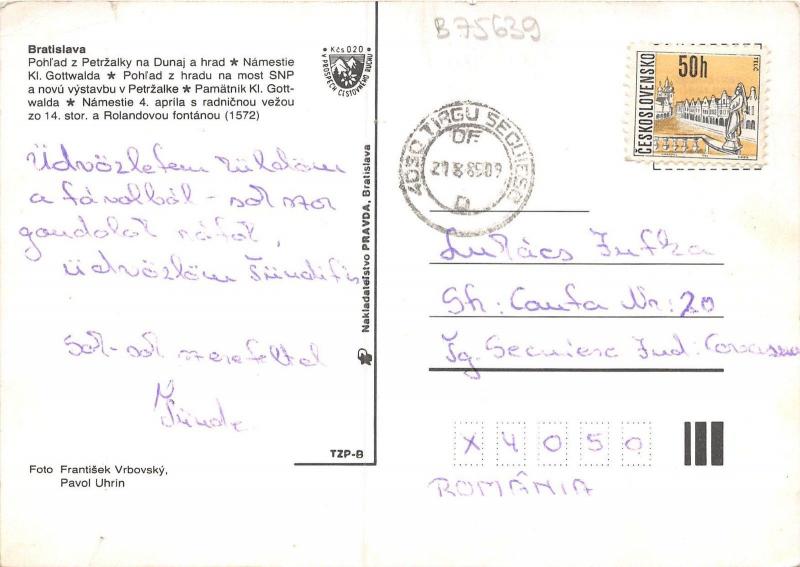 B75639
Bratislava
Pohľad z Petržalky na Dunaj a hrad ★ Námestie
Kl. Gottwalda ★ Pohľad z hradu na most SNP
a novú výstavbu v Petržalke ★ Pamätník Kl. Gott-
walda ★ Námestie 4. apríla s radničnou vežou
zo 14. stor. a Rolandovou fontánou (1572)
Kčs 020
V PROSPECH CESTOVNÉHO RUCHU
Üdvözletem küldöm
a távolból - sok szor
gondolok rátok,
üdvözlöm Tündi
Sok-sok szeretettel
Tünde
Nakladateľstvo PRAVDA, Bratislava
TZP-B
Foto František Vrbovský,
Pavol Uhrin
ČESKOSLOVENSKO
50h
TELČ
4050 TIRGU SECUIESC
21 8 85 09
Lukács Jutka
Str: Cauta Nr: 20
Tg. Secuiesc Jud: Covasna
X 4 0 5 0
ROMÂNIA